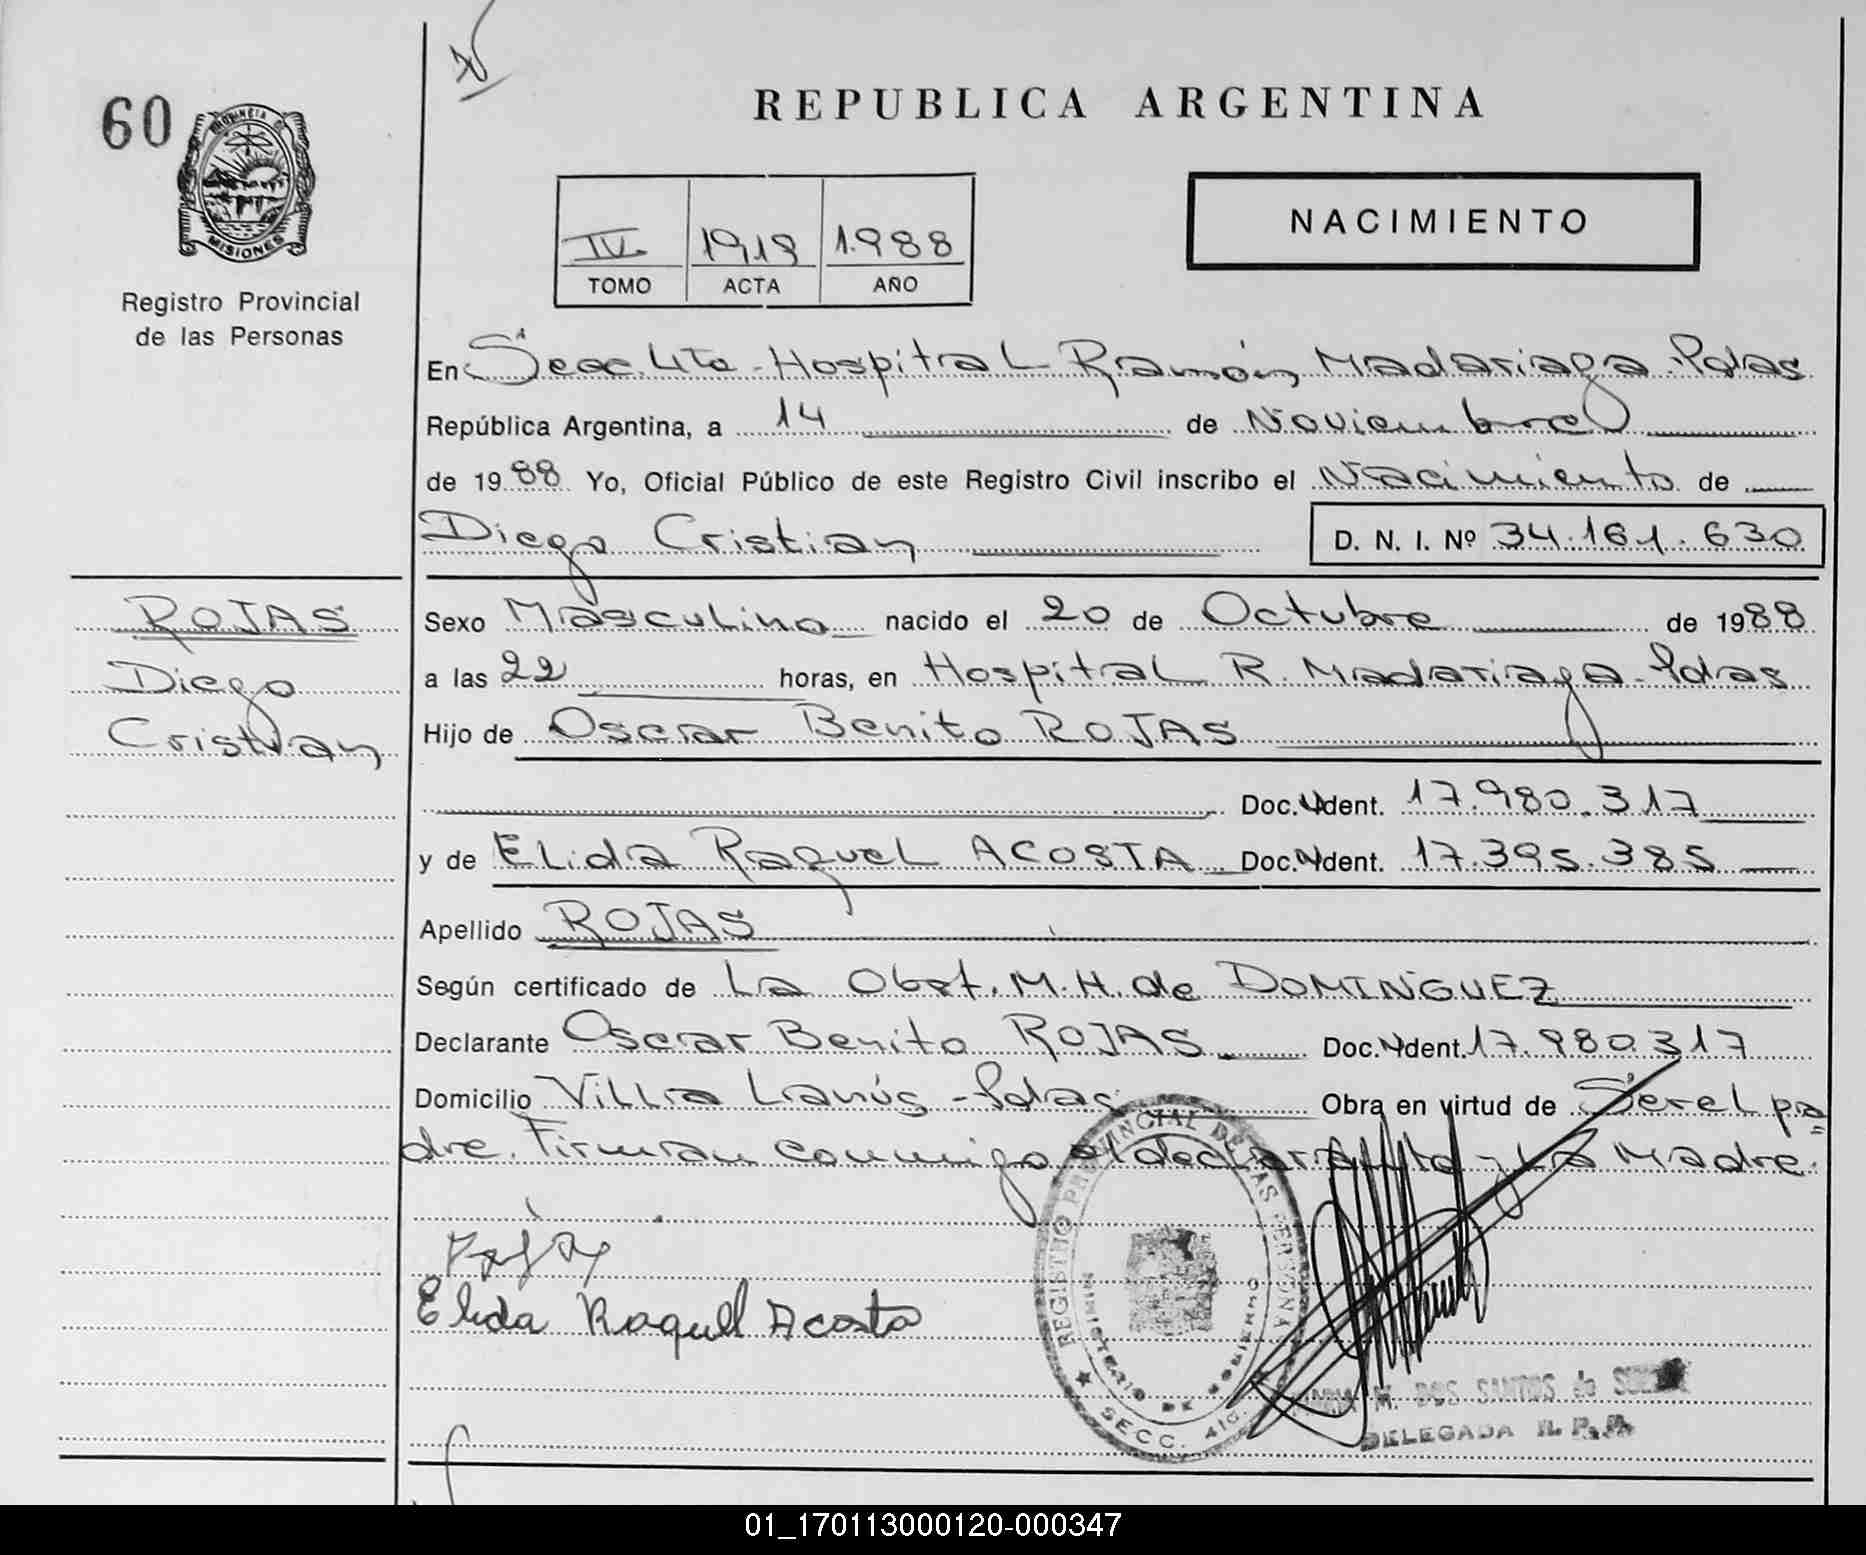 60
REPUBLICA ARGENTINA
PROVINCIA DE
MISIONES
Registro Provincial
de las Personas
IV 1913 1.988
TOMO ACTA AÑO
NACIMIENTO
En Secc. 4ta - Hospital Ramón Madariaga - Pdas
República Argentina, a 14 de Noviembre
de 1988 Yo, Oficial Público de este Registro Civil inscribo el Nacimiento de
Diego Cristian D. N. I. Nº 34.161.630
ROJAS
Diego
Cristian
Sexo Masculino nacido el 20 de Octubre de 1988
a las 22 horas, en Hospital R. Madariaga - Pdas
Hijo de Oscar Benito ROJAS
Doc. Ident. 17.980.317
y de ELida RaqueL ACOSTA Doc. Ident. 17.395.385
Apellido ROJAS
Según certificado de La Obst. M. H. de DOMINGUEZ
Declarante Oscar Benito ROJAS Doc. Ident. 17.980.317
Domicilio Villa Lanús - Pdas Obra en virtud de Ser el pa
dre. Firman conmigo el declarante y La Madre.
Elida Raquel Acosta
REGISTRO PROVINCIAL DE LAS PERSONAS
MINISTERIO DE GOBIERNO
SECC. 4ta.
M. DOS SANTOS de
DELEGADA R. P. P.
01_170113000120-000347